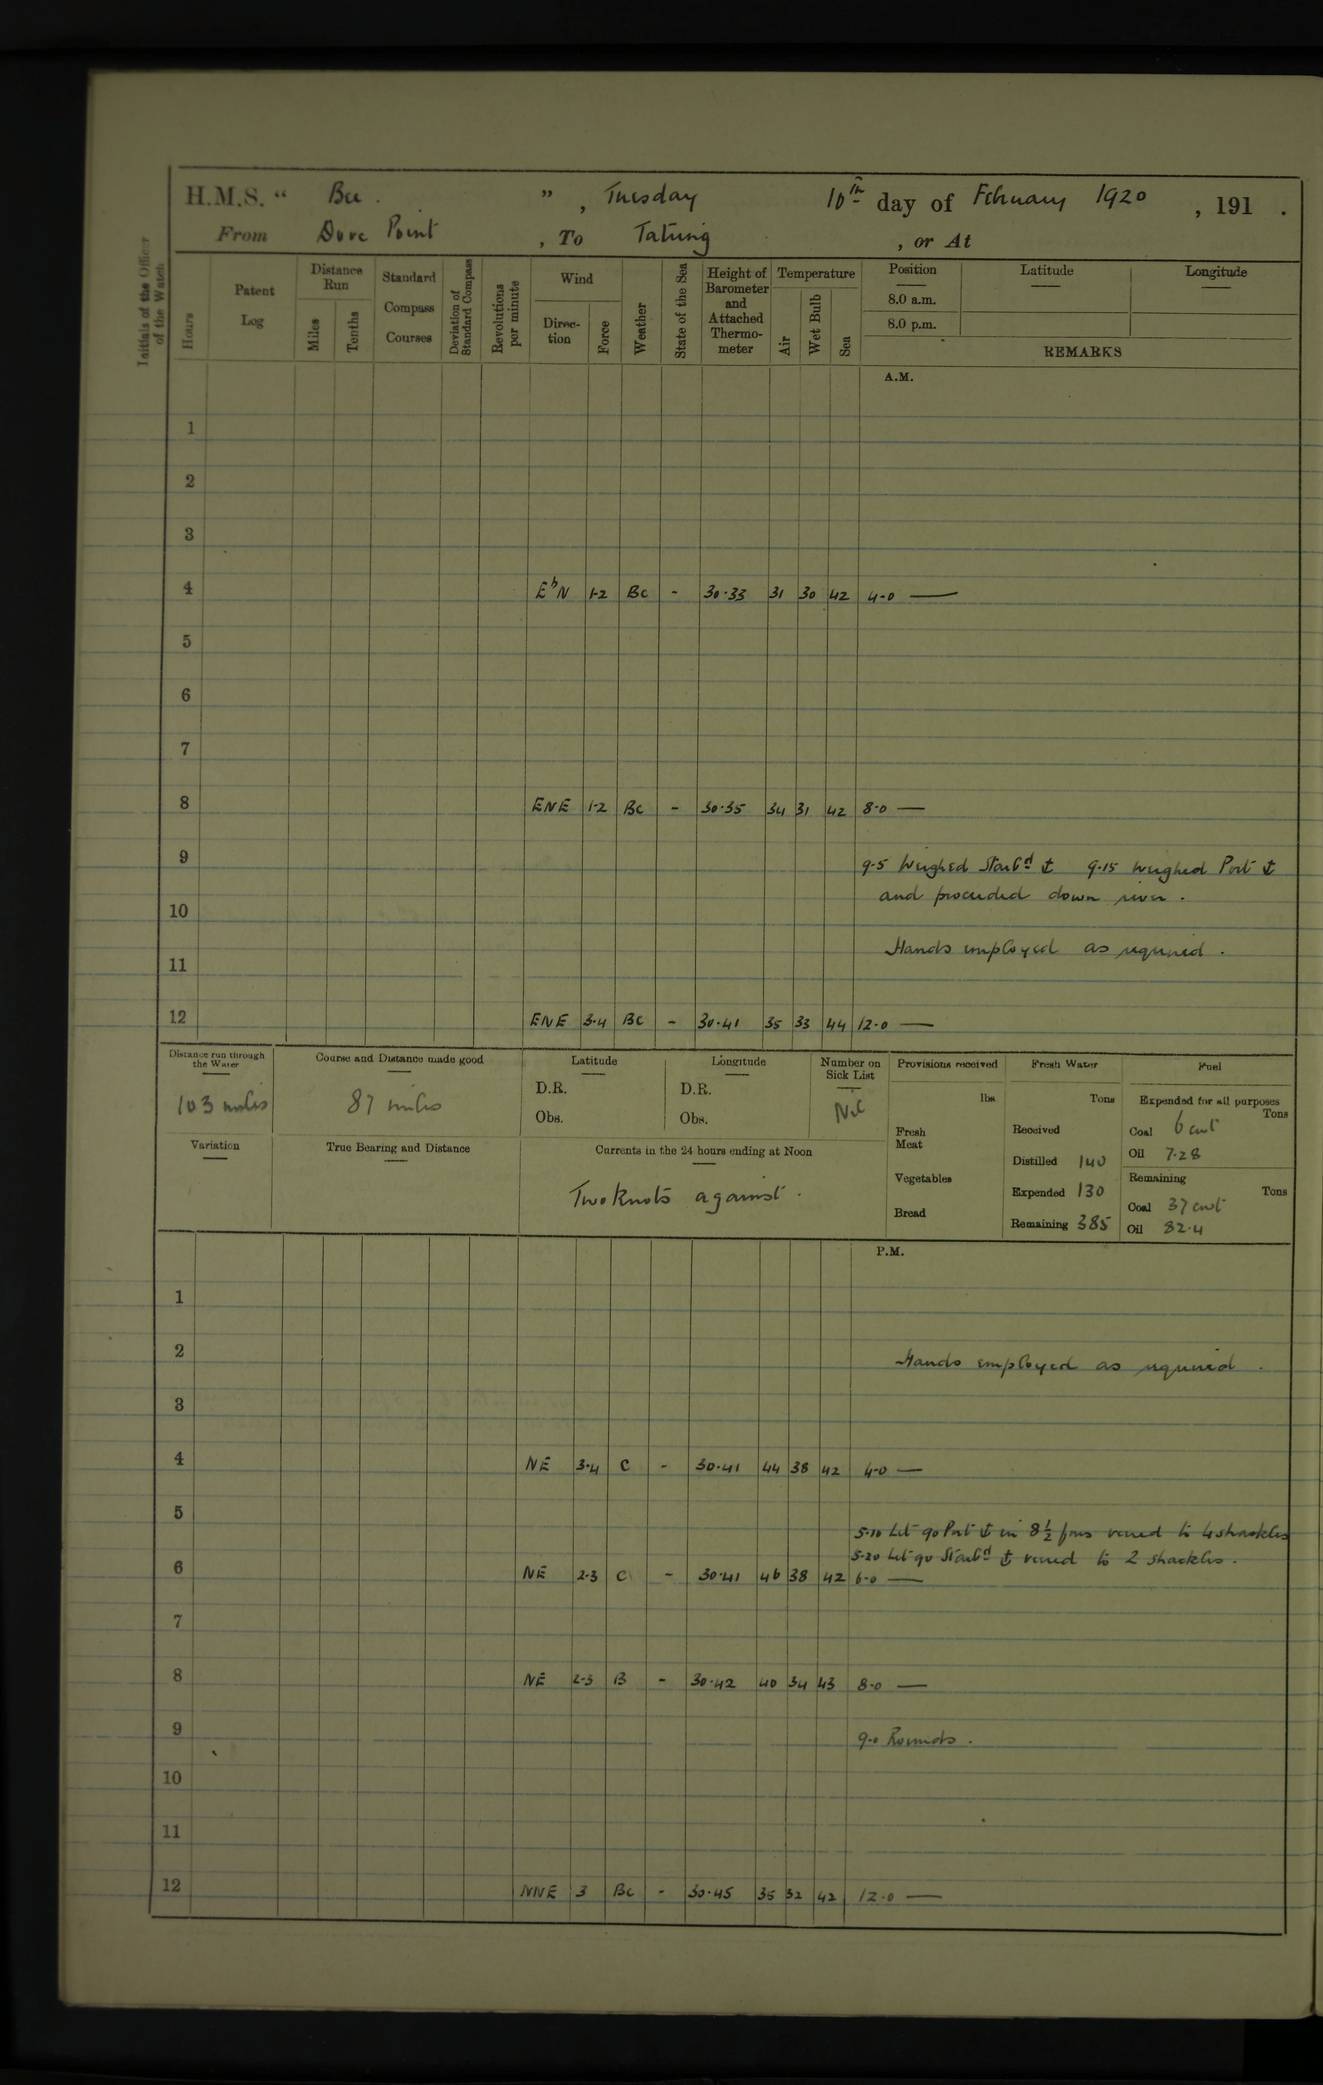 H.M.S. “ Bee. ” , Tuesday 10th day of February 1920 , 191 .
From Dove Point , To Tatung , or At
Initials of the Officer of the Watch
Hours
Patent Log
Distance Run
Miles
Tenths
Standard Compass Courses
Deviation of Standard Compass
Revolutions per minute
Wind
Direction
Force
Weather
State of the Sea
Height of Barometer and Attached Thermometer
Temperature
Air
Wet Bulb
Sea
Position
8.0 a.m.
8.0 p.m.
Latitude
Longitude
REMARKS
A.M.
1
2
3
4 EbN 1-2 Bc - 30.33 31 30 42 4-0 —
5
6
7
8 ENE 1-2 Bc - 30.35 34 31 42 8-0 —
9 9-5 Weighed Starbd ⚓ 9-15 weighed Port ⚓
and proceeded down river.
10
Hands employed as required.
11
12 ENE 3-4 Bc - 30.41 35 33 44 12-0 —
Distance run through the Water
103 miles
Course and Distance made good
87 miles
Latitude
D.R.
Obs.
Longitude
D.R.
Obs.
Number on Sick List
Nil
Provisions received
lbs
Fresh Meat
Vegetables
Bread
Fresh Water
Tons
Received
Distilled 140
Expended 130
Remaining 385
Fuel
Expended for all purposes
Tons
Coal 6 cwt
Oil 7.28
Remaining
Tons
Coal 37 cwt
Oil 82.4
Variation
True Bearing and Distance
Currents in the 24 hours ending at Noon
Two Knots against.
P.M.
1
2 Hands employed as required.
3
4 NE 3-4 C - 30.41 44 38 42 4-0 —
5
5-10 Let go Port ⚓ in 8½ fms veered to 4 shackles
5-20 Let go Starbd ⚓ veered to 2 shackles.
6 NE 2-3 C - 30.41 46 38 42 6-0 —
7
8 NE 2-3 B - 30.42 40 34 43 8-0 —
9 9-0 Rounds.
10
11
12 NNE 3 Bc - 30.45 35 32 42 12-0 —